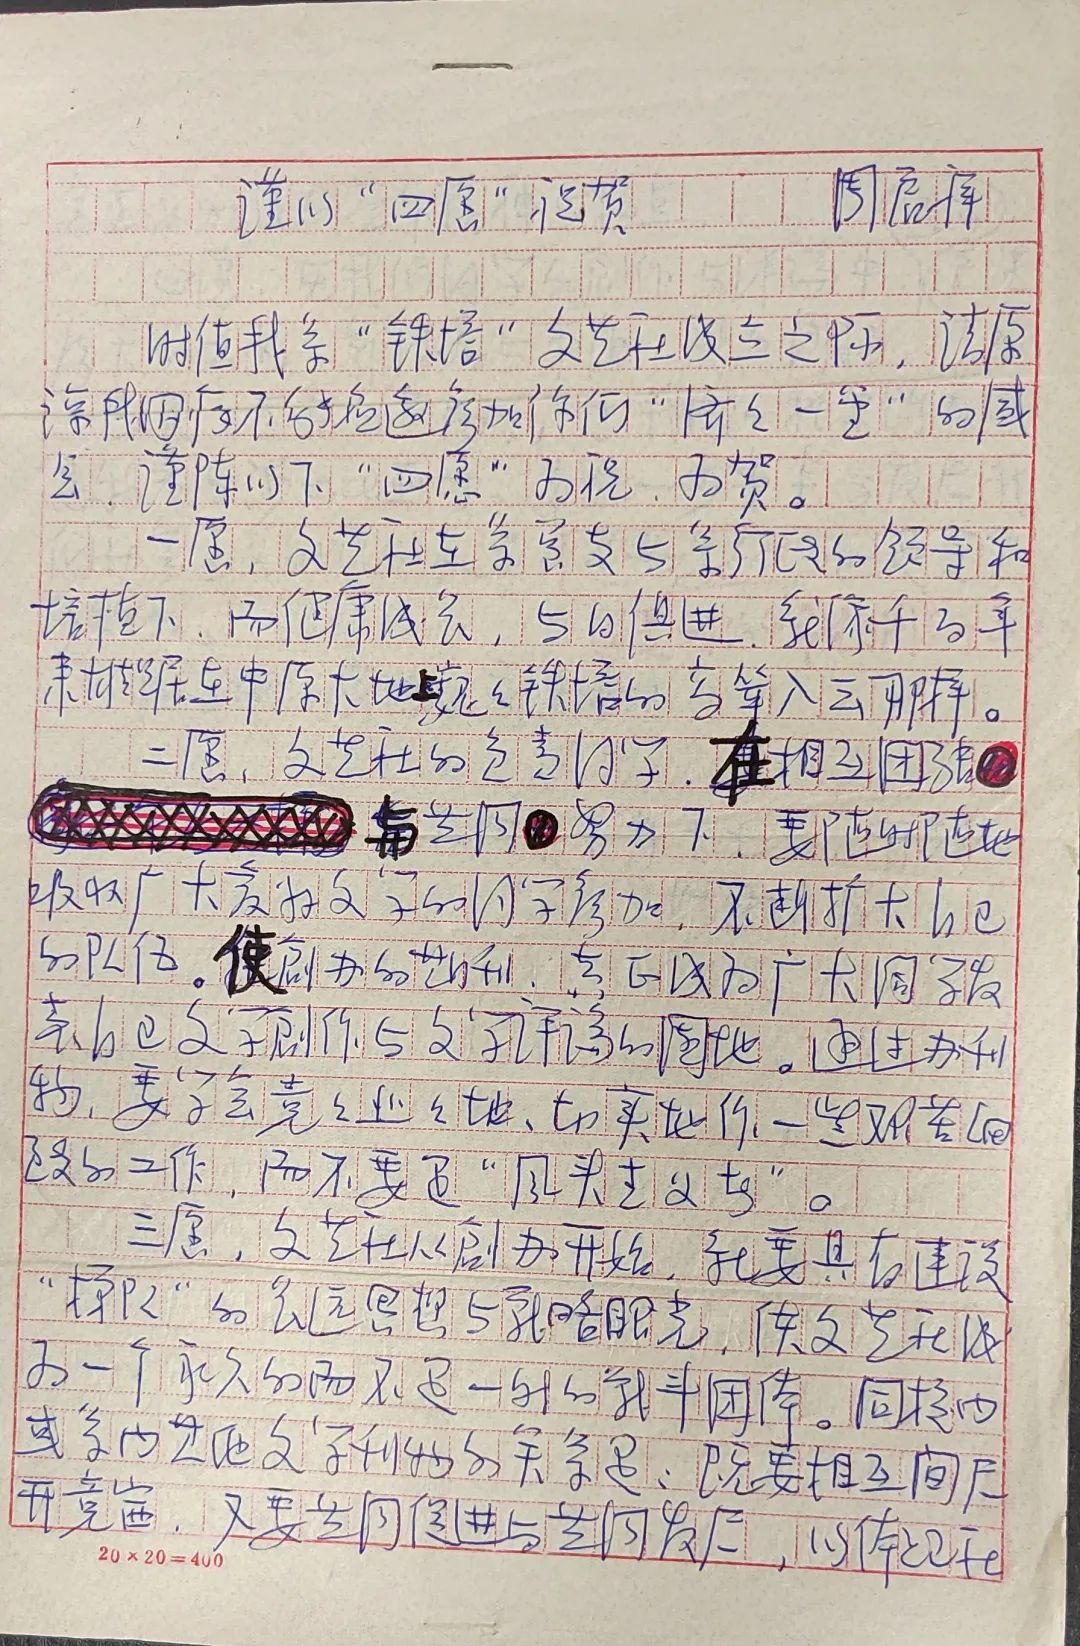 谨以“四愿”祝贺 周启祥
时值我系“铁塔”文艺社成立之际，请原
谅我因病不能应邀参加你们“济济一堂”的盛
会，谨陈以下“四愿”为祝、为贺。
一愿，文艺社在学系支与系行政的领导和
培植下，而健康成长，与日俱进，就像千百年
来雄踞在中原大地上巍巍铁塔的高耸入云那样。
二愿，文艺社的负责同学，在相互团结
与共同努力下，要随时随地
吸收广大爱好文学的同学参加，不断扩大自己
的队伍。使创办的期刊，真正成为广大同学发
表自己文学创作与文学评论的园地。通过办刊
物，要学会兢兢业业地、切实地作一些艰苦
的工作，而不要追“风头主义者”。
三愿，文艺社从创办开始，就要具有建设
“梯队”的长远思想与战略眼光，使文艺社成
为一个永久的而不是一时的战斗团体。同校内
或系内其他文学刊物的关系是：既要相互间展
开竞赛，又要共同促进与共同发展，以体现社
20×20=400